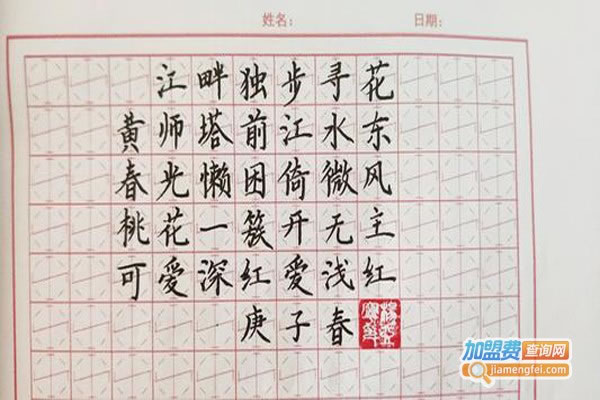 姓名: 日期:
江畔独步寻花
黄师塔前江水东
春光懒困倚微风
桃花一簇开无主
可爱深红爱浅红
庚子春
加盟费查询网
jiamengfei.com